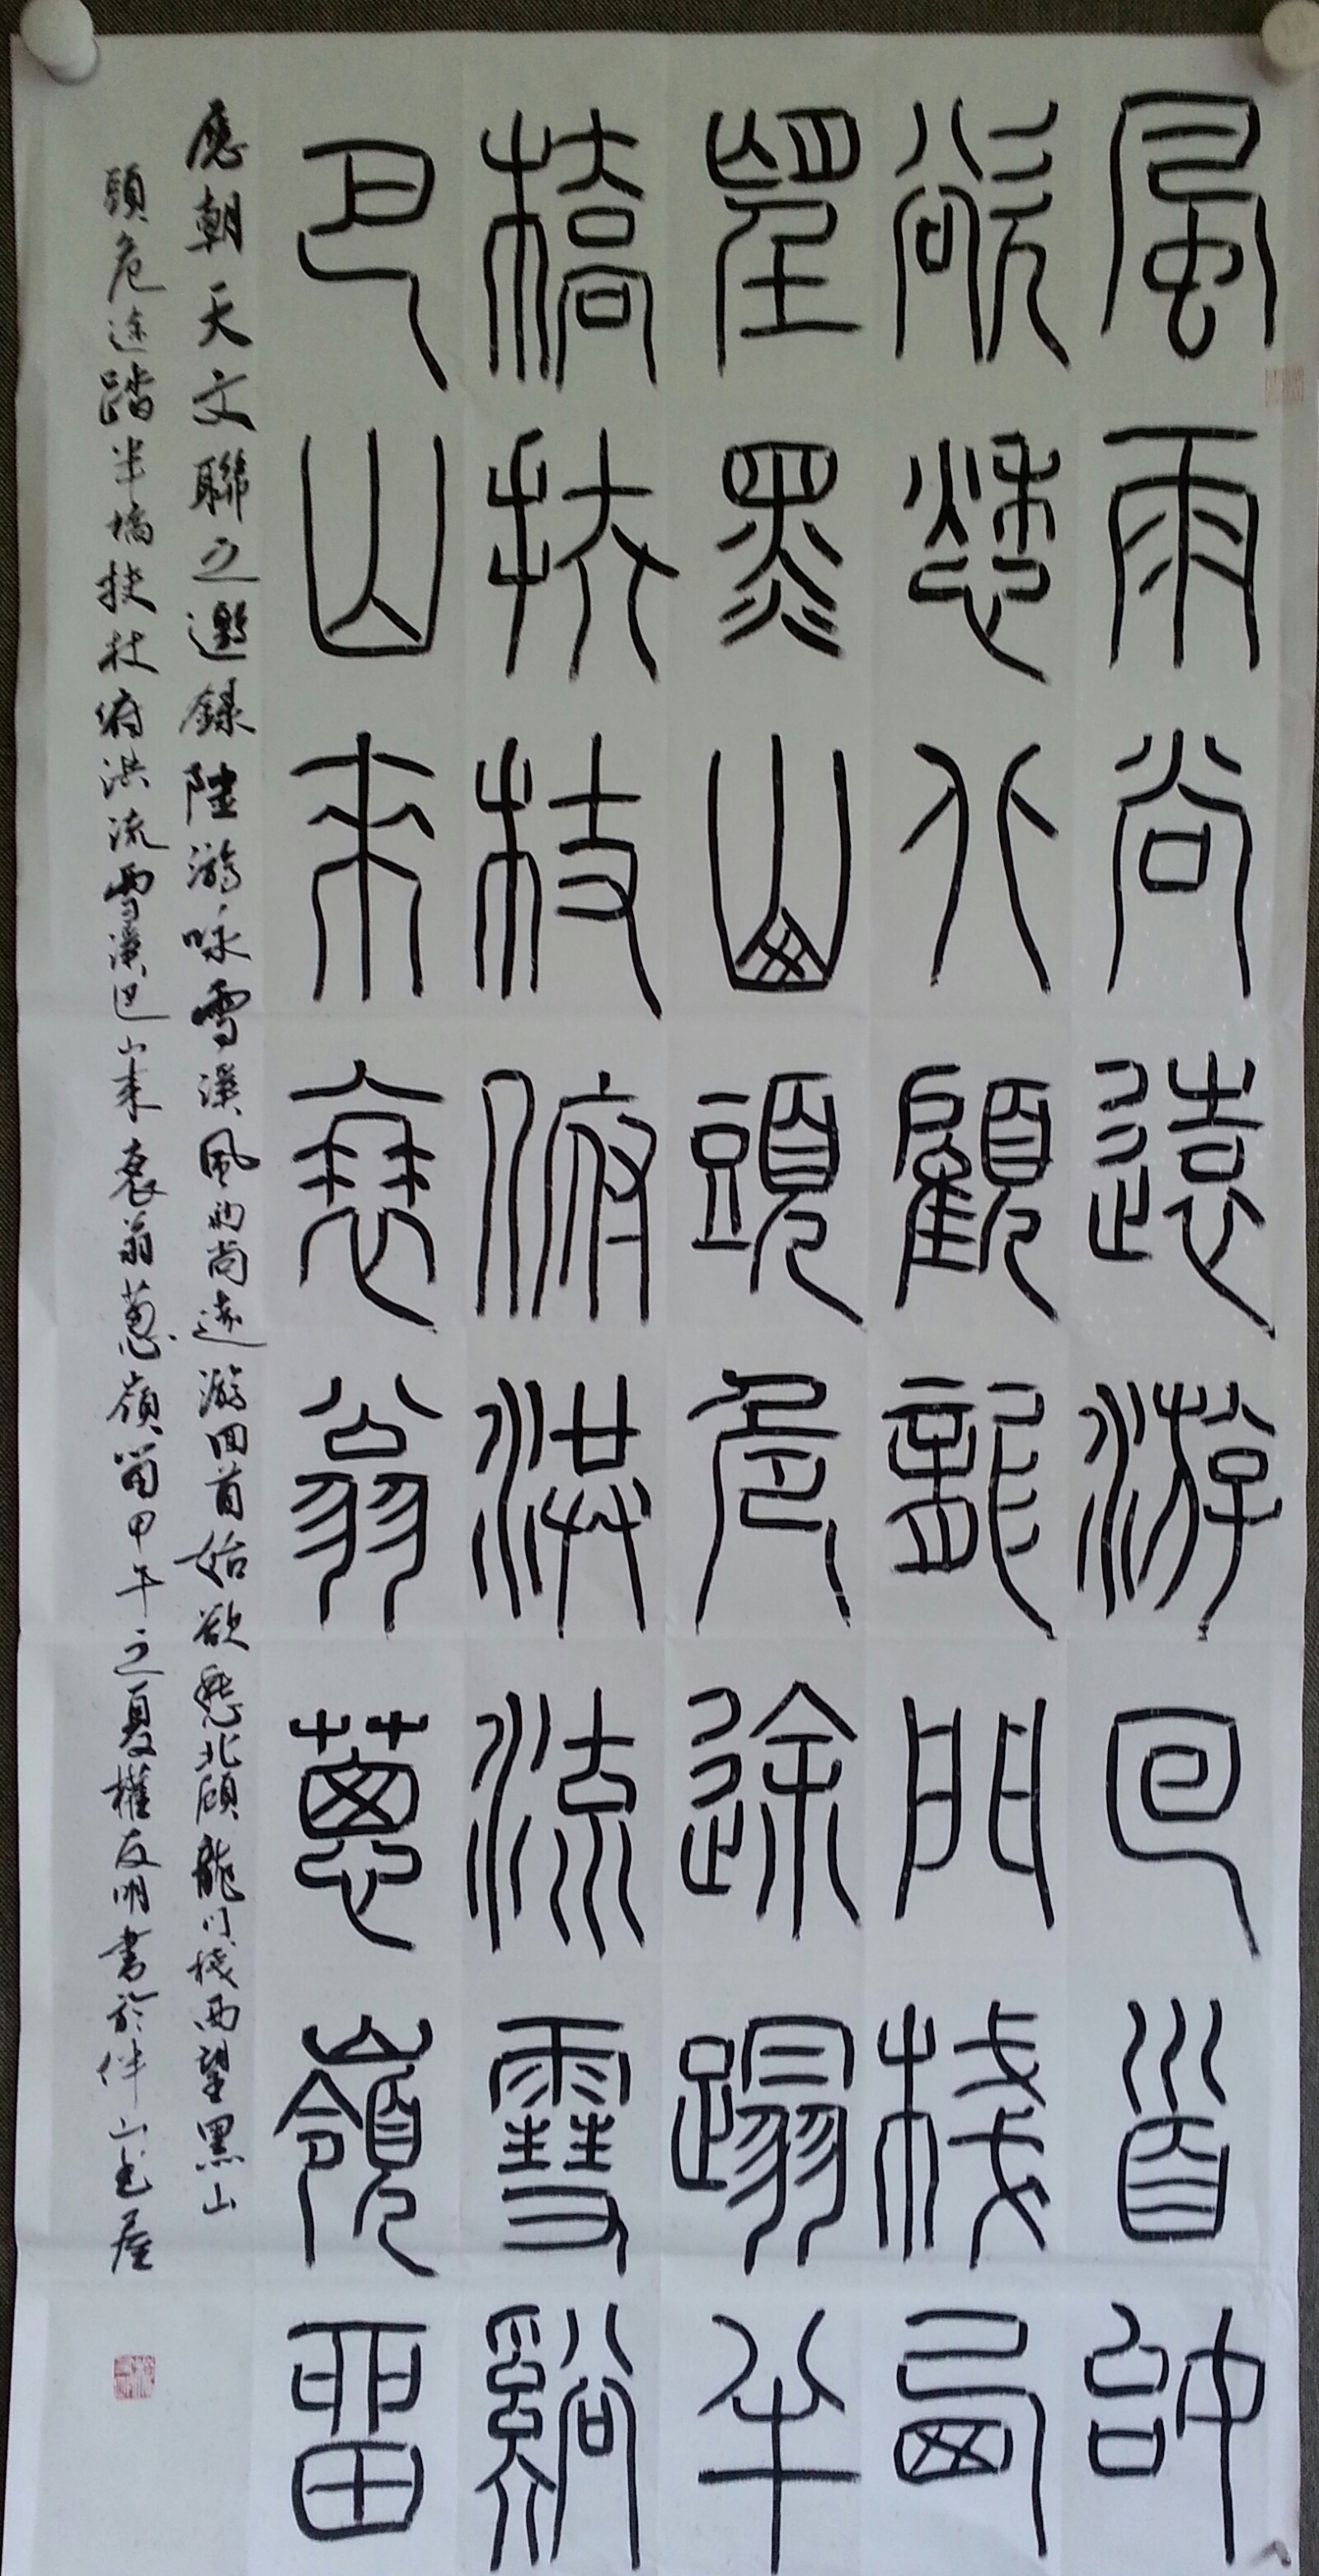 風雨尚遠游回首始
欲愁北顧龍門棧西
望黑山頭危途蹋半
橋扶杖俯洪流雪谿
巴山來衰翁蔥嶺留
應朝天文聯之邀錄陸游咏雪溪風雨尚遠游回首始欲愁北顧龍門棧西望黑山
頭危途踏半橋扶杖俯洪流雪溪巴山來衰翁蔥嶺留甲午之夏權友明書於伴山書屋